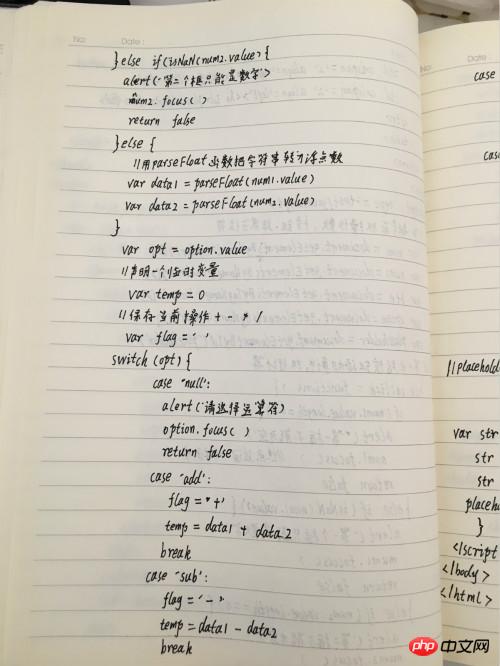 No: Date:
}else if(isNaN(num2.value){
alert('第二个框只能是数字'>
num2.focus( )
return false
}else {
//用parseFloat函数把字符串转为浮点数
var data1 = parseFloat(num1.value)
var data2 = parseFloat(num2.value)
}
var opt = option.value
//声明一个临时变量
var temp = 0
//保存当前操作 + - * /
var flag = ' '
switch (opt) {
case "null":
alert('请选择运算符)
option.focus( )
return false
case 'add':
flag = "+'
temp = data1 + data2
break
case "sub':
flag = '-'
temp = data1 - data2
break
Date:
case
cas
//placehold
var str
str
str
placeh
}
</script
</body>
</html>
php 中文网